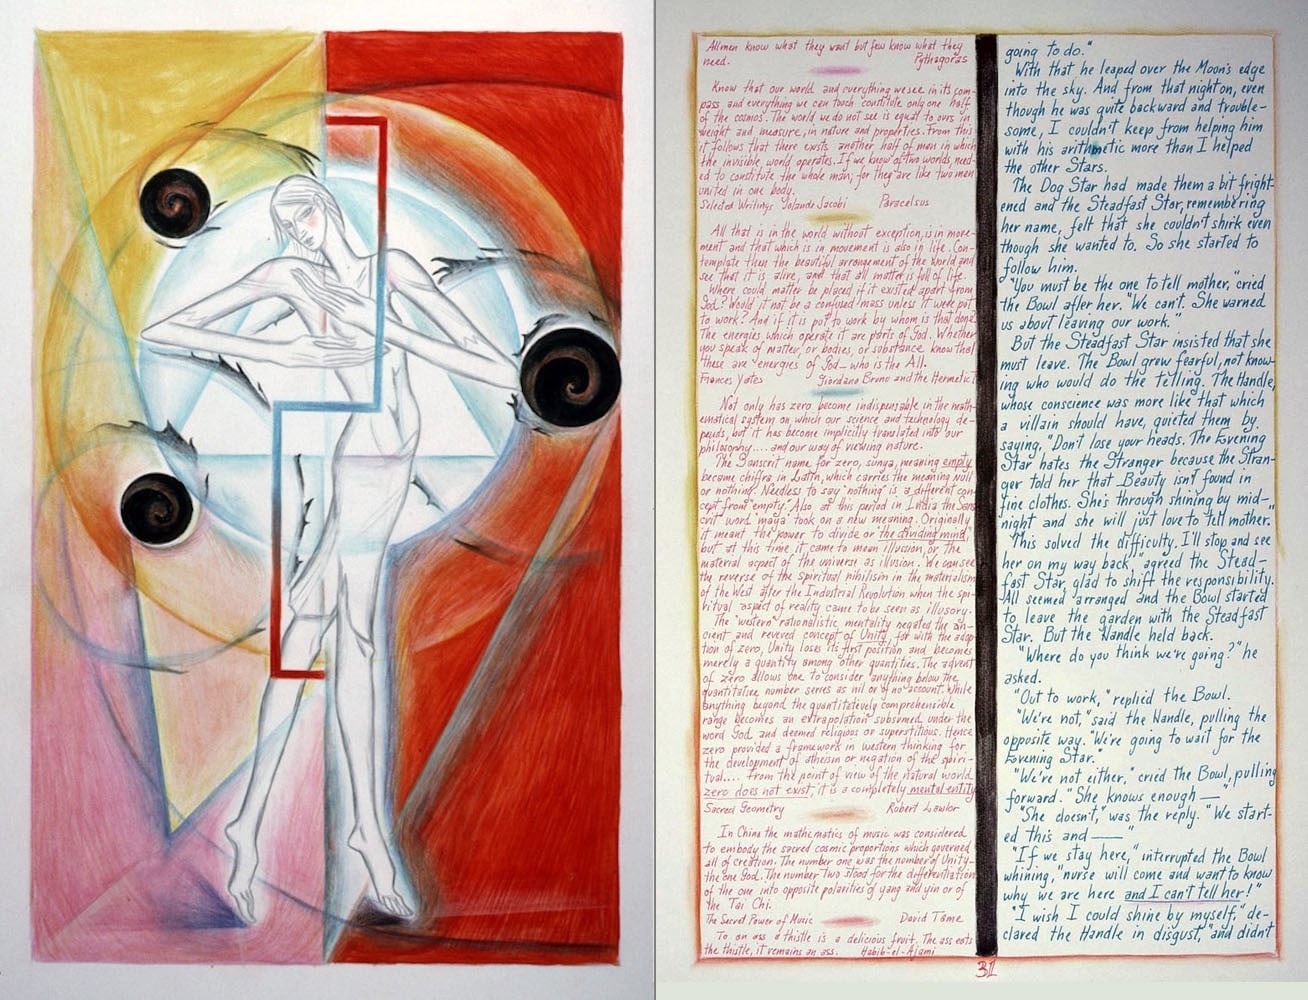 All men know what they want but few know what they
need. Pythagoras
Know that our world and everything we see in its com-
pass and everything we can touch constitute only one half
of the cosmos. The world we do not see is equal to ours in
weight and measure, in nature and properties. From this
it follows that there exists another half of man in which
the invisible world operates. If we know of two worlds need-
ed to constitute the whole man; for they are like two men
united in one body.
Selected Writings Yolande Jacobi Paracelsus
All that is in the world without exception, is in move-
ment and that which is in movement is also in life. Con-
template then the beautiful arrangement of the world and
see that it is alive, and that all matter is full of life.
Where could matter be placed if it existed apart from
God? Would it not be a confused mass unless it were put
to work? And if it is put to work by whom is that done?
The energies which operate it are parts of God. Whether
you speak of matter, or bodies, or substance know that
these are energies of God—who is the All.
Frances Yates Giordano Bruno and the Hermetic T
Not only has zero become indispensable in the math-
ematical system on which our science and technology de-
pends, but it has become implicitly translated into our
philosophy.... and our way of viewing nature.
The Sanscrit name for zero, sunya, meaning empty
became chiffra in Latin, which carries the meaning null
or nothing. Needless to say "nothing" is a different con-
cept from "empty." Also at this period in India the Sans
crit word maya took on a new meaning. Originally
it meant the "power to divide or the dividing mind,"
but at this time it came to mean illusion, or the
material aspect of the universe as illusion. We can see
the reverse of the spiritual nihilism in the materialism
of the West after the Industrial Revolution when the spi-
ritual aspect of reality came to be seen as illusory.
The "western" rationalistic mentality negated the an-
cient and revered concept of Unity, for with the adop
tion of zero, Unity loses its first position and becomes
merely a quantity among other quantities. The advent
of zero allows one to consider anything below the
quantitative number series as nil or of no account, while
anything beyond the quantitatively comprehensible
range becomes an extrapolation subsumed under the
word God and deemed religious or superstitious. Hence
zero provided a framework in western thinking for
the development of atheism or negation of the spiri-
tual.... From the point of view of the natural world
zero does not exist; it is a completely mental entity
Sacred Geometry Robert Lawlor
In China the mathematics of music was considered
to embody the sacred cosmic proportions which governed
all of creation. The number one was the number of Unity-
the one God. The number Two stood for the differentiation
of the one into opposite polarities of yang and yin or of
the Tai Chi.
The Secret Power of Music David Tame
To an ass a thistle is a delicious fruit. The ass eats
the thistle, it remains an ass. Habib-el-Ajami
going to do."
With that he leaped over the Moon's edge
into the sky. And from that night on, even
though he was quite backward and trouble-
some, I couldn't keep from helping him
with his arithmetic more than I helped
the other Stars.
The Dog Star had made them a bit fright-
ened and the Steadfast Star, remembering
her name, felt that she couldn't shirk even
though she wanted to. So she started to
follow him.
"You must be the one to tell mother," cried
the Bowl after her. "We can't. She warned
us about leaving our work."
But the Steadfast Star insisted that she
must leave. The Bowl grew fearful, not know-
ing who would do the telling. The Handle,
whose conscience was more like that which
a villain should have, quieted them by
saying, "Don't lose your heads. The Evening
Star hates the Stranger because the Stran-
ger told her that Beauty isn't found in
fine clothes. She's through shining by mid-
night and she will just love to tell mother."
This solved the difficulty. I'll stop and see
her on my way back," agreed the Stead-
fast Star, glad to shift the responsibility.
All seemed arranged and the Bowl started
to leave the garden with the Steadfast
Star. But the Handle held back.
"Where do you think we're going?" he
asked.
"Out to work," replied the Bowl.
"We're not," said the Handle, pulling the
opposite way. "We're going to wait for the
Evening Star."
"We're not either," cried the Bowl, pulling
forward. "She knows enough —"
"She doesn't," was the reply. "We start-
ed this and —"
"If we stay here," interrupted the Bowl
whining, "nurse will come and want to know
why we are here and I can't tell her!"
"I wish I could shine by myself," de-
clared the Handle in disgust, "and didn't
31